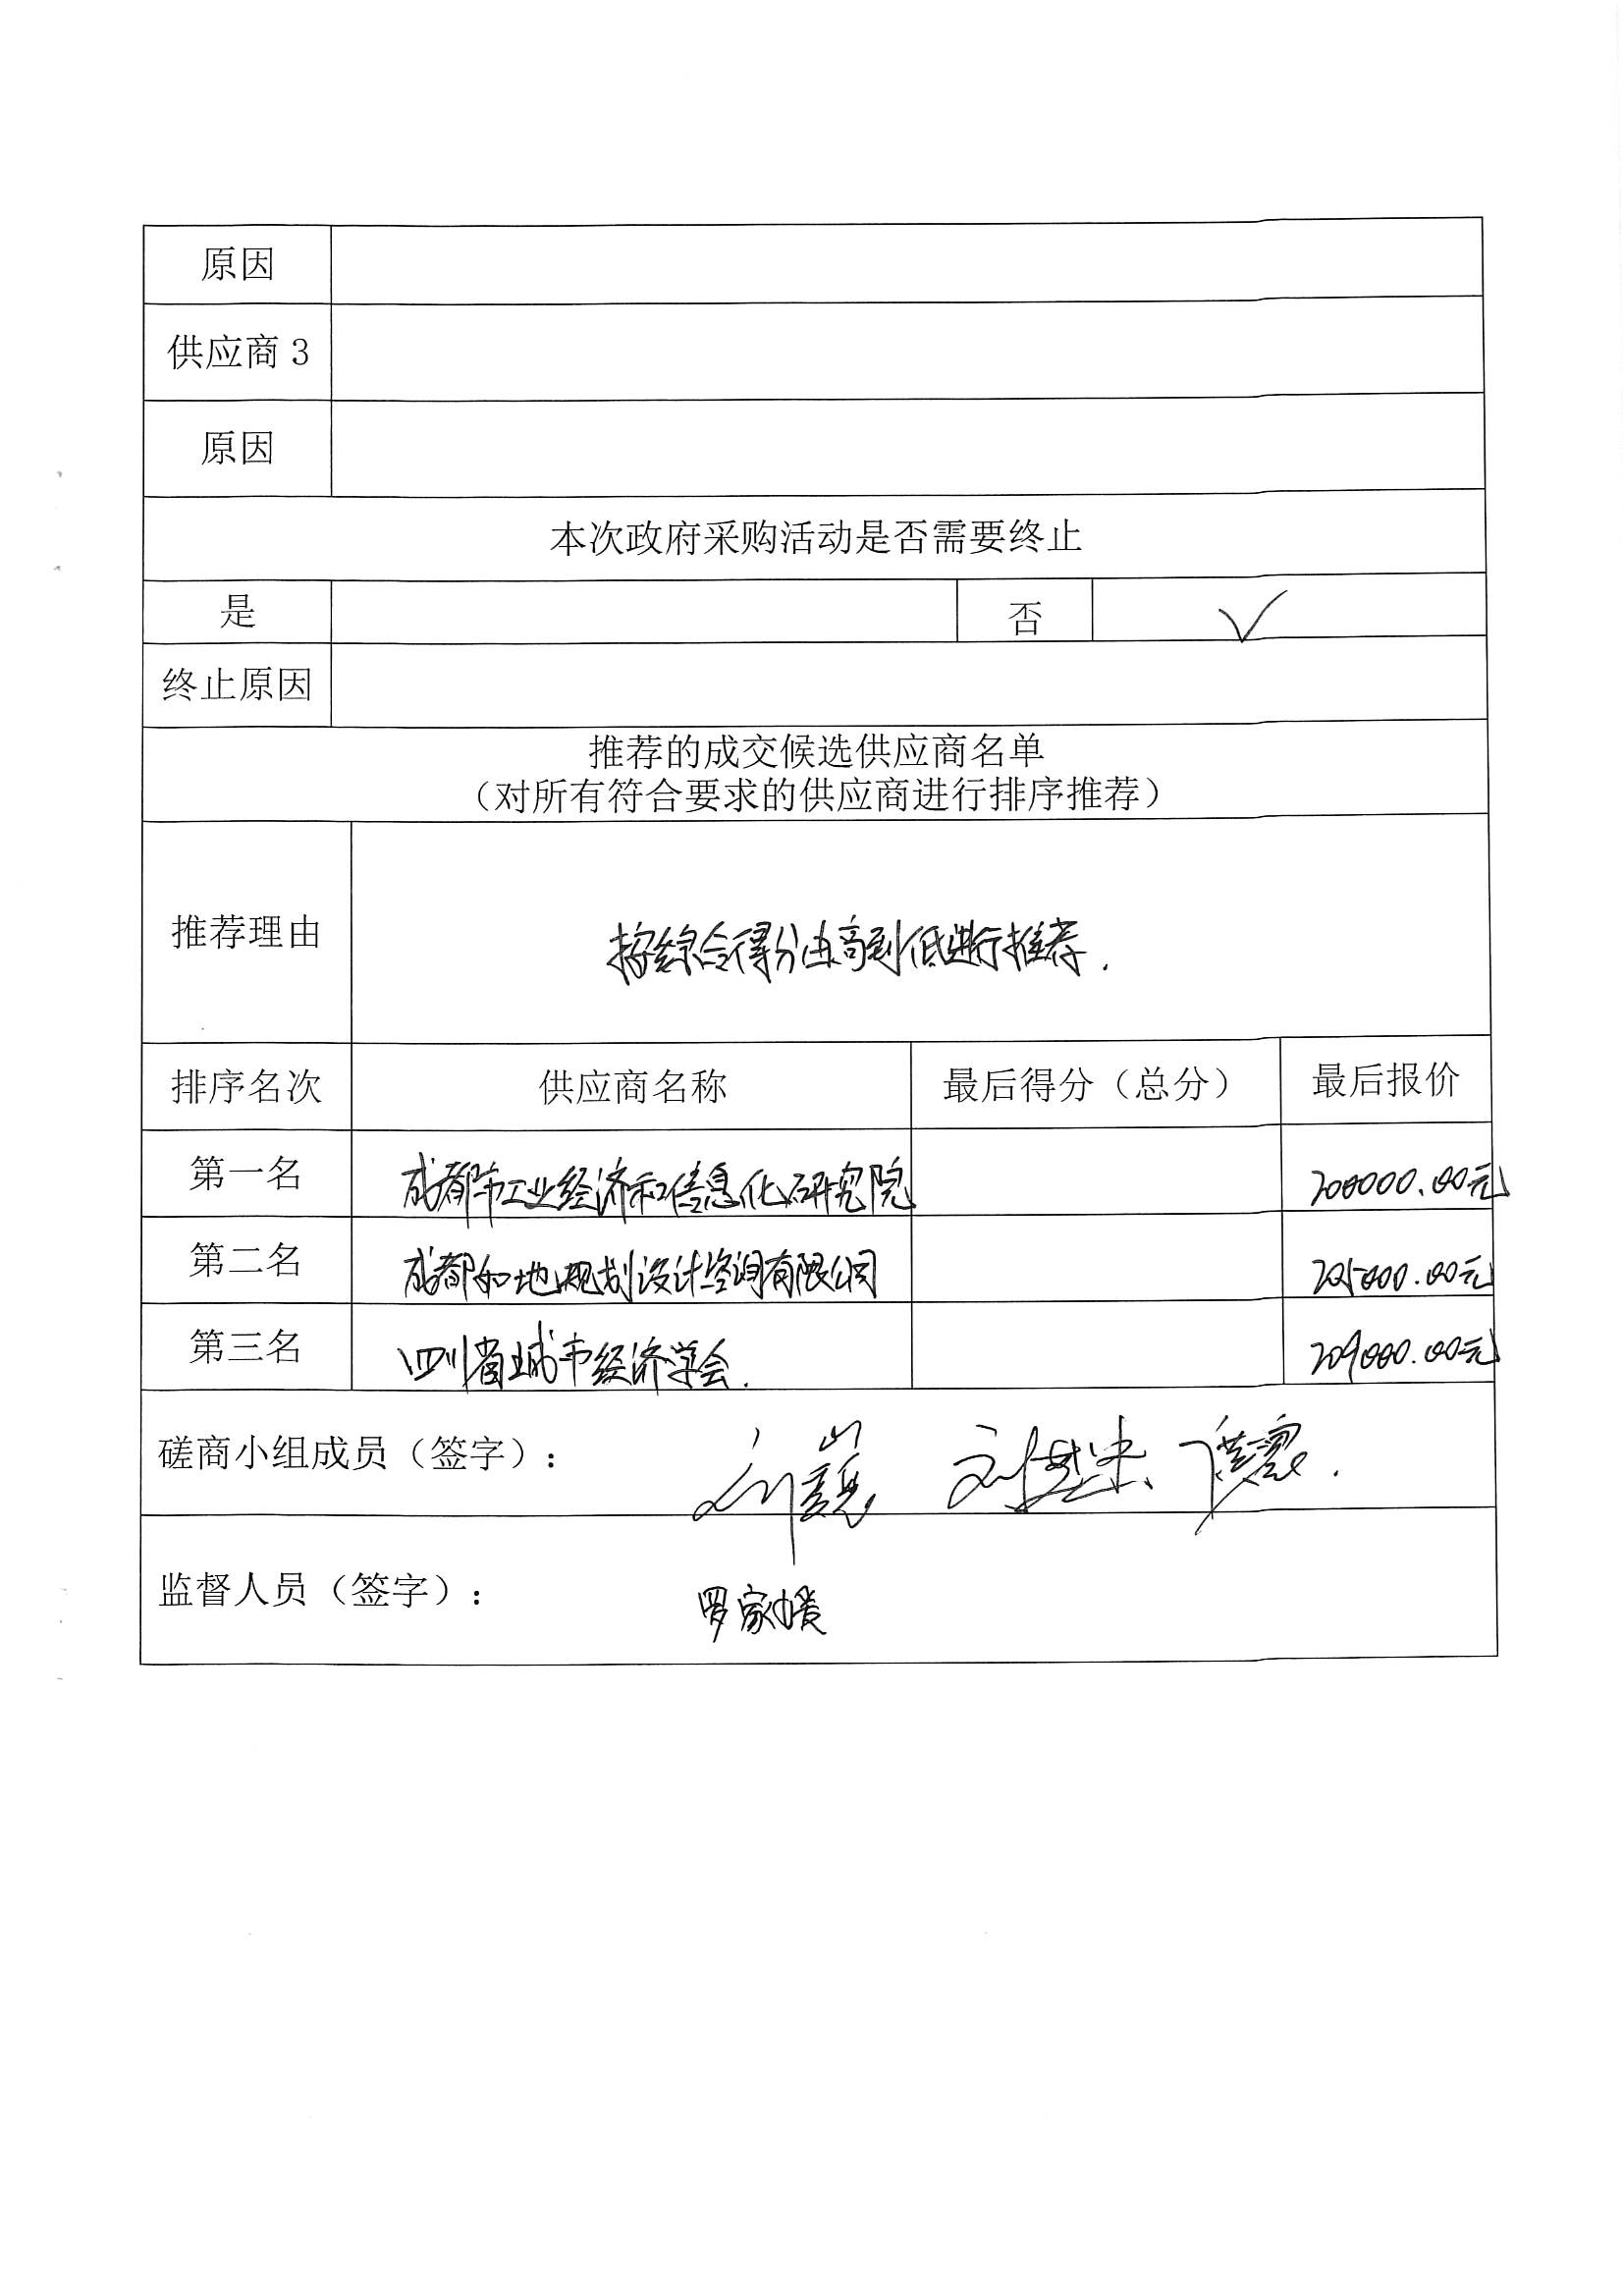 原因
供应商 3
原因
本次政府采购活动是否需要终止
是 否 √
终止原因
推荐的成交候选供应商名单
（对所有符合要求的供应商进行排序推荐）
推荐理由 按综合得分由高到低进行推荐.
排序名次 供应商名称 最后得分（总分） 最后报价
第一名 成都市工业经济和信息化研究院 200000.00元
第二名 成都和地规划设计咨询有限公司 205000.00元
第三名 四川省城市经济学会. 209000.00元
磋商小组成员（签字）：
监督人员（签字）： 罗家媛